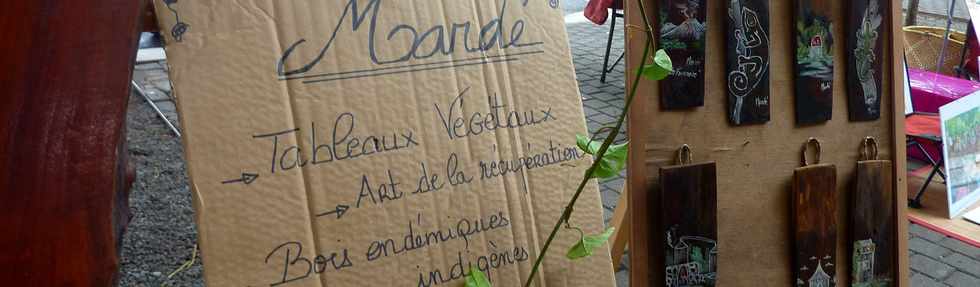 Mardé
Tableaux Végétaux
Art de la récupération
Bois endémiques
indigènes